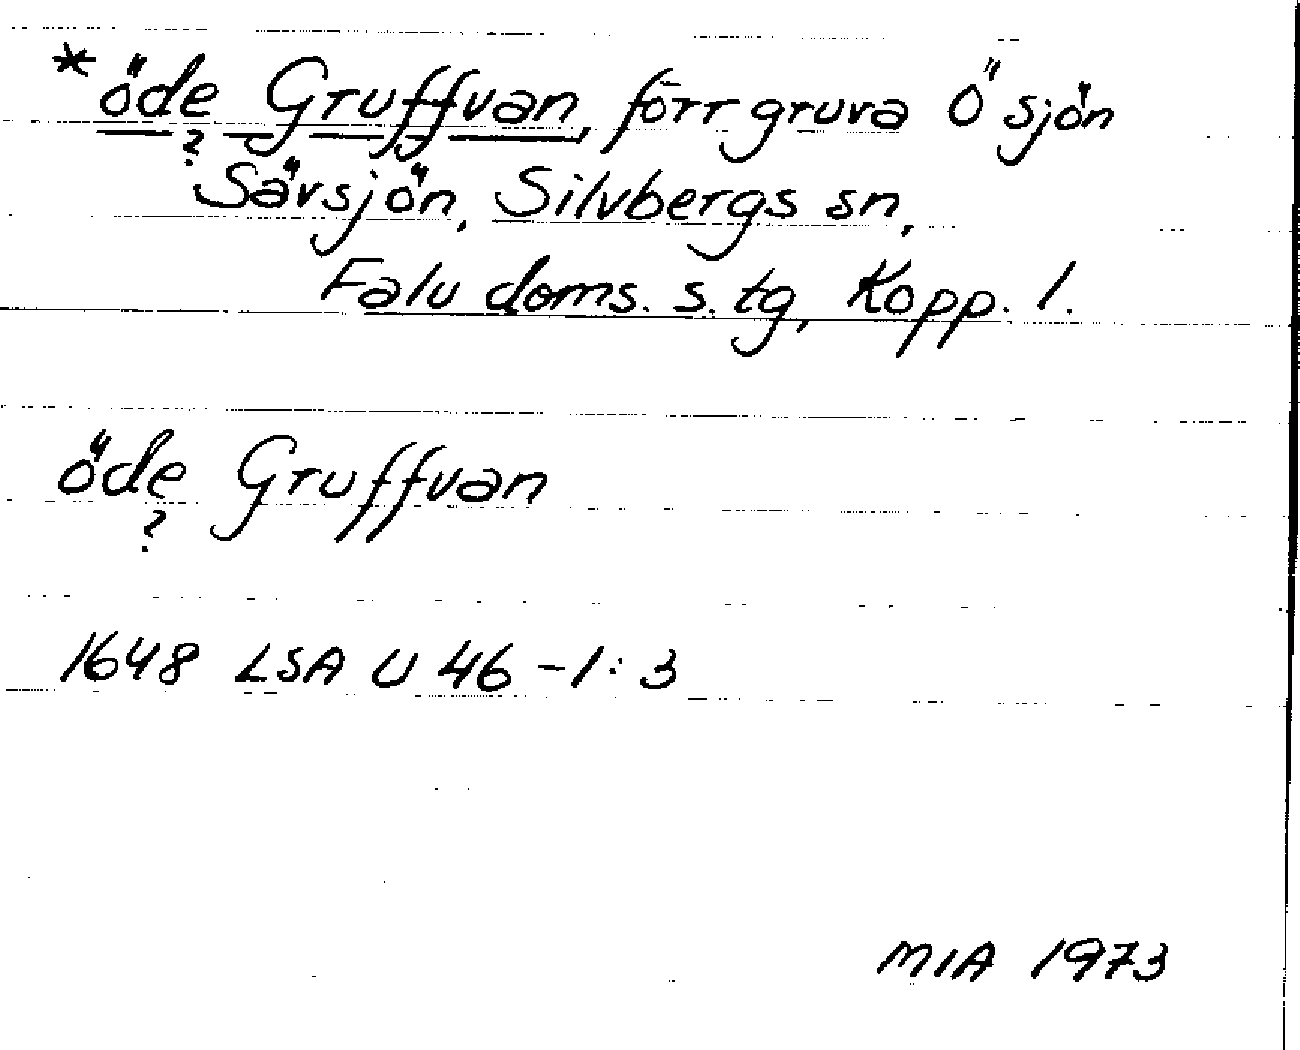 *öde Gruffvan, förr gruva Ö sjön
?
Sävsjön, Silvbergs sn,
Falu doms. s. tg, Kopp. l.
öde Gruffvan
?
1648 LSA U 46-1:3
MIA 1973